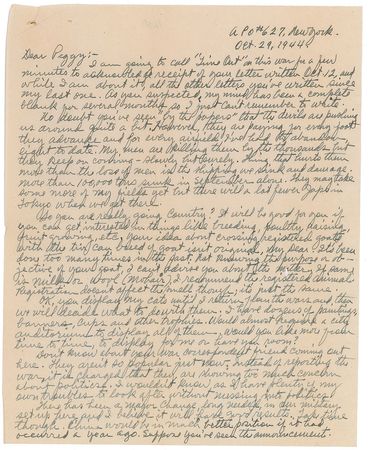 A.P.O. #627, New York.
Oct. 29, 1944
Dear Peggy:-
I am going to call "Time Out" on this war for a few
minutes to acknowledge receipt of your letter written Oct 12, and
while I am about it, all the other letters you've written since
my last one. As you suspected, my mind has been a complete
blank for several months, so I just can't remember to write.
No doubt you've seen "by the papers" that the devils are pushing
us around quite a bit. However, they are paying for every foot
they advance and for every airfield I've had to abandon,
eight to date. My men are killing them by the thousands but
they keep on coming - slowly but surely. Thing that hurts them
more than the loss of men is the shipping we sink and damage.
More than 100,000 tons sunk in September alone. They may take
some more of my fields yet but there will be a lot fewer Japs in
Tokyo when we get there.
So you are really going, Country! It will be good for you if
you can get interested in things like breeding, poultry raising,
fruit growing, etc. Your idea about crossing registered goats
with the 
 been done
too many times in the past. Not knowing the purpose or ob-
jective of your goat, I can't advise you about the 
 If same
is Milk or Wool (Mohair) I recommend a registered animal.
Registration doesn't affect the milk though, it's just the same.
OK, you display my cats until I return from the wars and then
we will decide what to do with them. I have dozens of paintings
banners, cups and other trophies. Would almost require a city
auditorium to display all of them. Would you like more from
time to time, to display for me or have you room?
Don't know about your war correspondent friend coming out
here. They aren't so popular just now. Instead of reporting the
war it is charged that they are showing too much concern
about politics. I wouldn't know, as I have plenty of my
own troubles to look after without messing into politics.
There has been a major change, long needed, in our military
set up here and I believe it will have good results. Take time
though. China would be in much better position if it had
occurred a year ago. Suppose you've seen the announcement.